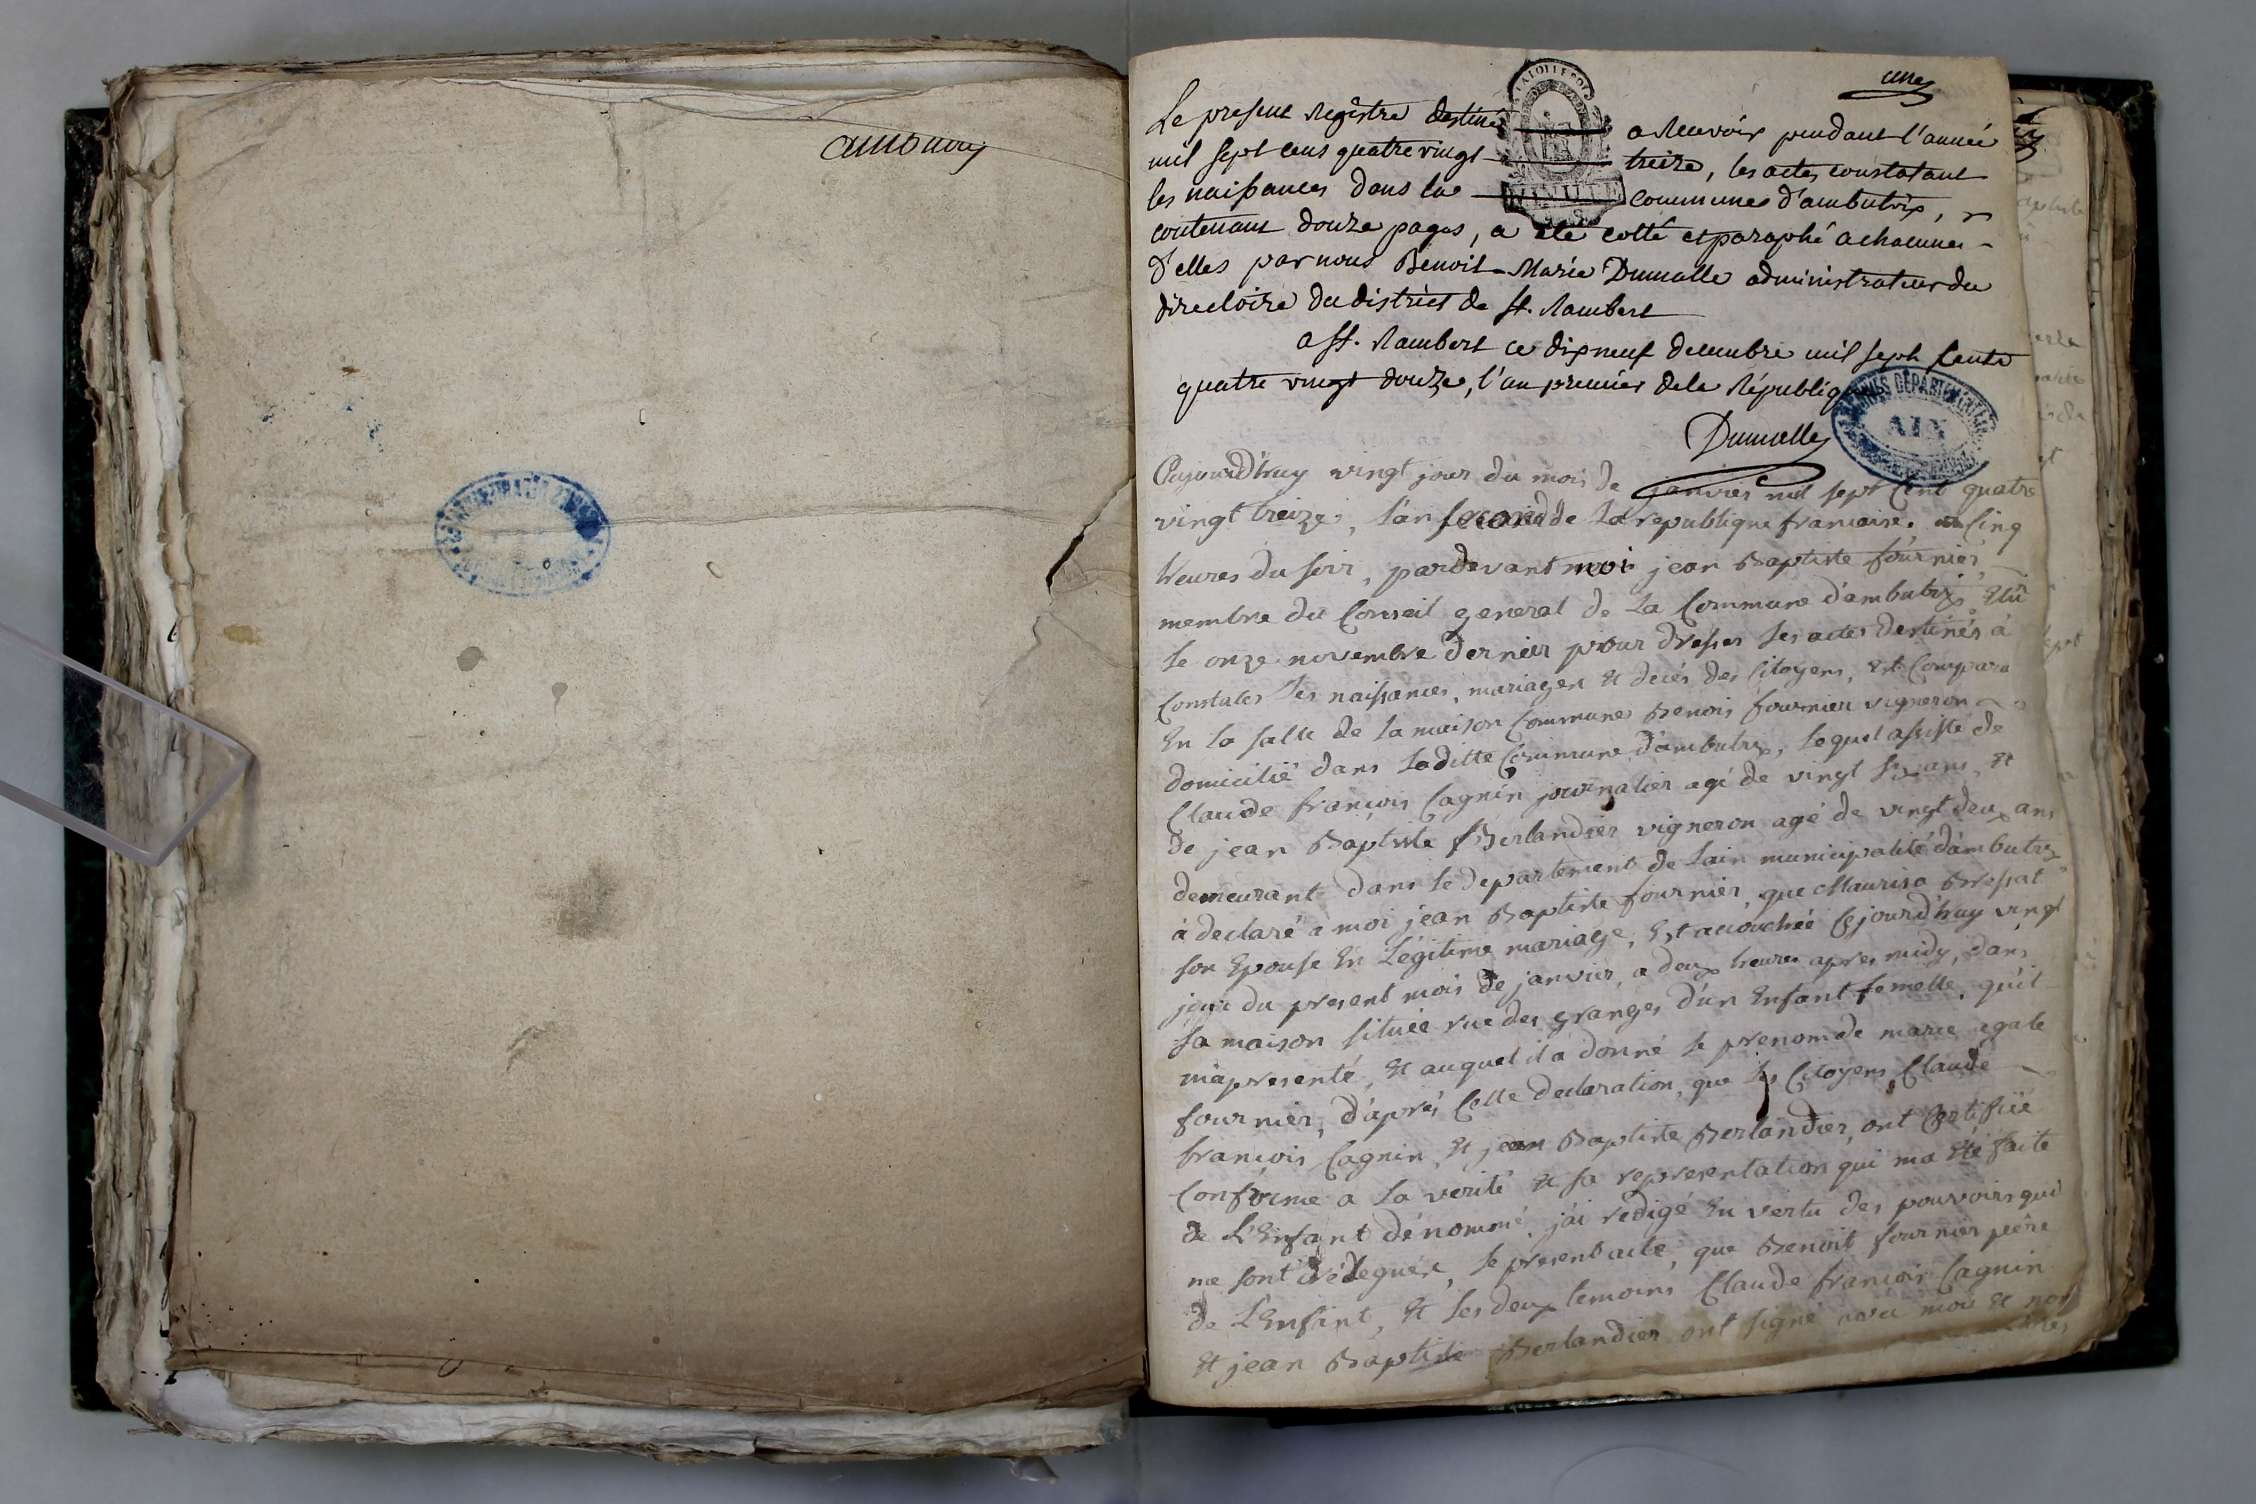 une
Le present Registre destiné a Recevoir pendant l'année
mil sept cens quatre vingt treize, les actes constatant
les naissances dans la commune d'ambutrix,
contenant douze pages, a été cotté et paraphé a chacune
d'elles par nous Benoit-Marie Dumolle administrateur du
directoire du district de St. Rambert
a St. Rambert ce dix neuf decembre mil sept cents
quatre vingt douze, l'an premier de la République
MINUTE
AIN
Aujourd'huy vingt jour du mois de janvier mil sept cent quatre
vingt treize, l'an second de la republique francaise. a cinq
heures du soir, pardevant moi jean Baptiste fournier
membre du Conseil general de la Commune d'ambutrix, élû
le onze novembre dernier pour dresser les actes destinés à
constater les naissances, mariages et decés des citoyens, est comparu
En la salle de la maison commune Benois fournier vigneron
domicilié dans laditte Commune d'ambutrix, lequel assisté de
Claude françois Cagnin journalier agé de vingt six ans, et
de jean Baptiste Berlandier vigneron agé de vingt deux ans
demeurant dans le departement de lain municipalité d'ambutrix
à declaré à moi jean Baptiste fournier, que Maurisa Bressat
son Epouse En Légitime mariage, Est accouchée cejourd'huy vingt
jour du present mois de janvier, a deux heures apres midy, dans
sa maison située rue des granges d'un Enfant femelle, qu'il
m'a presenté, et auquel il a donné le prenom de marie egale
fournier, d'aprés cette declaration, que les Citoyens Claude
francois Cagnin, et jean Baptiste Berlandier, ont Certifiée
Conforme a la verité et la representation qui ma été faite
de L'Enfant dénommé, j'ai redigé En vertu des pouvoirs qui
me sont délegués, le present acte, que Benoit fournier pére
de L'Enfant, et les deux temoins Claude francois Cagnin
et jean Baptiste Berlandier ont signé avec moi et non